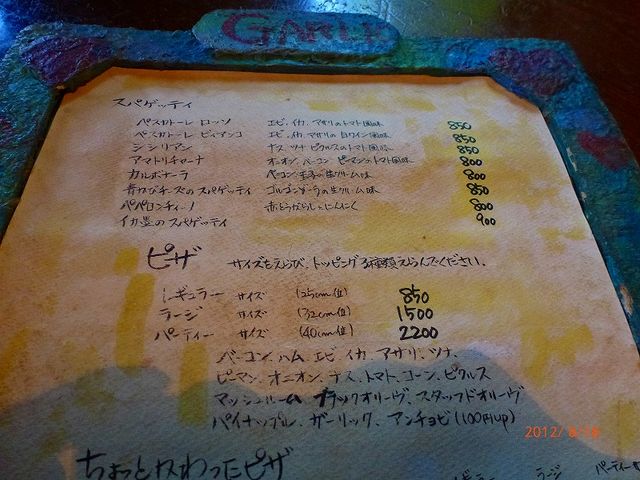 GARLI
スパゲッティ
ペスカトーレ ロッソ エビ、イカ、アサリのトマト風味 850
ペスカトーレ ビィアンコ エビ、イカ、アサリの白ワイン風味 850
シシリアン ナス ツナ ピクルスのトマト風味 850
アマトリチャーナ オニオン ベーコン ピーマンのトマト風味 800
カルボナーラ ベーコン 玉子の生クリーム味 800
青かびチーズのスパゲッティ ゴルゴンゾーラの生クリーム味 850
ペペロンチィーノ 赤とうがらしとにんにく 800
イカ墨のスパゲッティ 900
ピザ サイズをえらび、トッピング3種類えらんでください。
レギュラー サイズ (25cm位) 850
ラージ サイズ (32cm位) 1500
パーティー サイズ (40cm位) 2200
ベーコン、ハム、エビ、イカ、アサリ、ツナ、
ピーマン、オニオン、ナス、トマト、コーン、ピクルス
マッシュルーム ブラックオリーヴ、スタッフドオリーヴ
パイナップル、ガーリック、アンチョビ(100円up)
2012/ 8/16
ちょっとかわったピザ
レギュラー ラージ パーティー